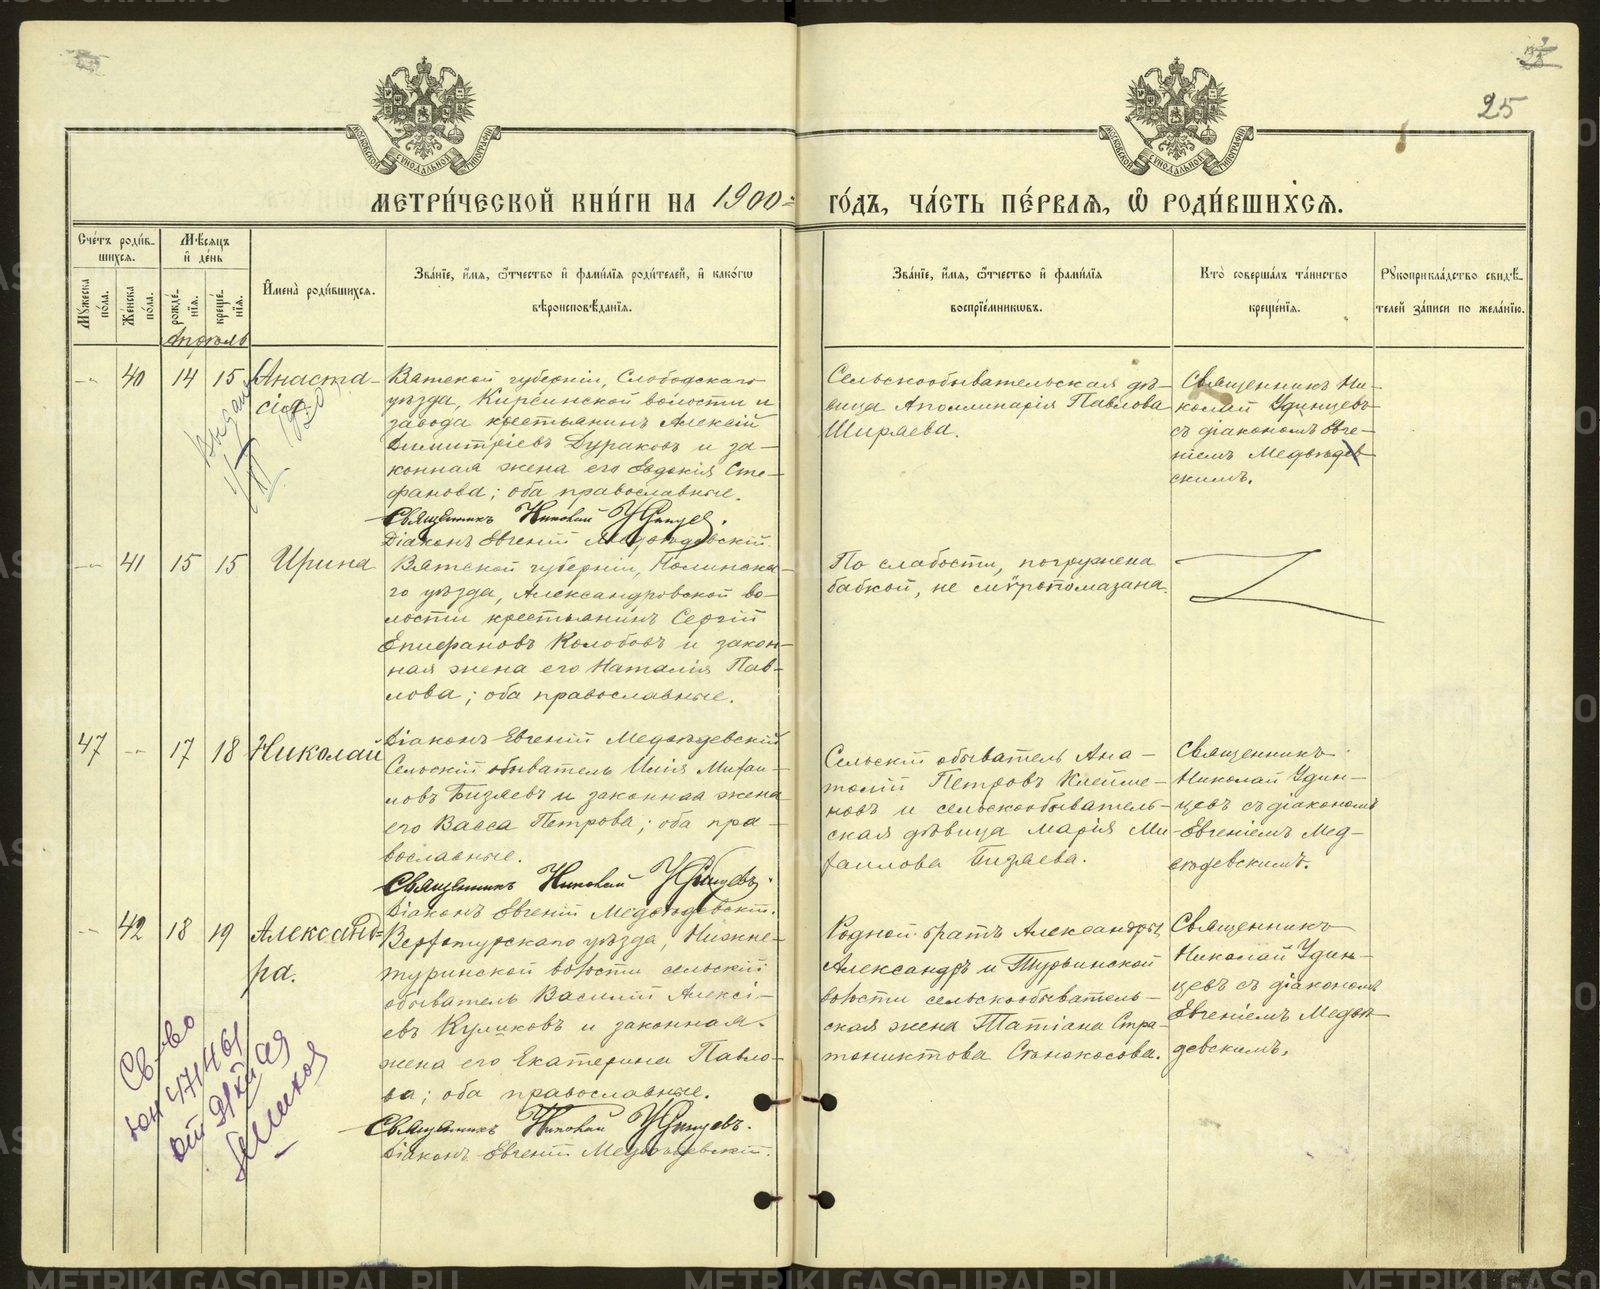 25
МОСКОВСКОЙ СѴНОДАЛЬНОЙ ТИПОГРАФІИ
МОСКОВСКОЙ СѴНОДАЛЬНОЙ ТИПОГРАФІИ
МЕТРИ́ЧЕСКОЙ КНИ́ГИ НА 1900 ГО́ДЪ, ЧА́СТЬ ПЕ́РВАѦ, Ѡ҆ РОДИ́ВШИХСѦ.
Сче́тъ роди́в-
шихсѧ.
Мꙋ́жеска по́ла.
Же́нска по́ла.
Мѣ́сѧцъ и҆ де́нь
рожде́-нїѧ.
креще́-нїѧ.
И҆мена̀ роди́вшихсѧ.
Зва́нїе, и҆́мѧ, ѻ҆́тчество и҆ фами́лїѧ роди́телей, и҆ како́гѡ
вѣроисповѣ́данїѧ.
Зва́нїе, и҆́мѧ, ѻ҆́тчество и҆ фами́лїѧ
воспрїе́мникѡвъ.
Кто̀ соверша́лъ та́инство
креще́нїѧ.
Рꙋкоприкла́дство свидѣ́-
телей за́писи по жела́нїю.
Апрѣль
40 14 15 Анаста-
сія.
Вятской губерніи, Слободскаго
уѣзда, Кирсинской волости и
завода крестьянинъ Алексій
Димитріевъ Дураковъ и за-
конная жена его Евдокія Сте-
фанова; оба православные.
Священникъ Николай Удинцев.
Діаконъ Евгеній Медвѣдевскій
Сельскообывательская дѣ-
вица Аполлинарія Павлова
Ширяева.
Священникъ Ни-
колай Удинцевъ
съ діакономъ Евге-
ніемъ Медвѣдев-
скимъ.
41 15 15 Ирина
Вятской губерніи, Нолинска-
го уѣзда, Александровской во-
лости крестьянинъ Сергій
Епифановъ Колобовъ и закон-
ная жена его Наталія Пав-
лова; оба православные.
Діаконъ Евгеній Медвѣдевскій
По слабости, погружена
бабкой, не мѵропомазана.
47 17 18 Николай
Сельскій обыватель Илія Михаи-
ловъ Бизяевъ и законная жена
его Васса Петрова; оба пра-
вославные.
Священникъ Николай Удинцевъ.
Діаконъ Евгеній Медвѣдевскій.
Сельскій обыватель Ана-
толій Петровъ Клейме-
новъ и сельскообыватель-
ская дѣвица Марія Ми-
хаилова Бизяева.
Священникъ
Николай Удин-
цевъ съ діакономъ
Евгеніемъ Мед-
вѣдевскимъ.
42 18 19 Александ-
ра.
Верхотурскаго уѣзда, Нижне-
туринской волости сельскій
обыватель Василій Алексі-
евъ Куликовъ и законная
жена его Екатерина Павло-
ва; оба православные.
Священникъ Николай Удинцевъ.
Діаконъ Евгеній Медвѣдевскій.
Родной братъ Александры
Александръ и Туринской
волости сельскообыватель-
ская жена Татіана Стра-
тониктова Станокосова.
Священникъ
Николай Удин-
цевъ съ діакономъ
Евгеніемъ Медвѣ-
девскимъ.
Св-во
METRIKI.GASO-URAL.RU